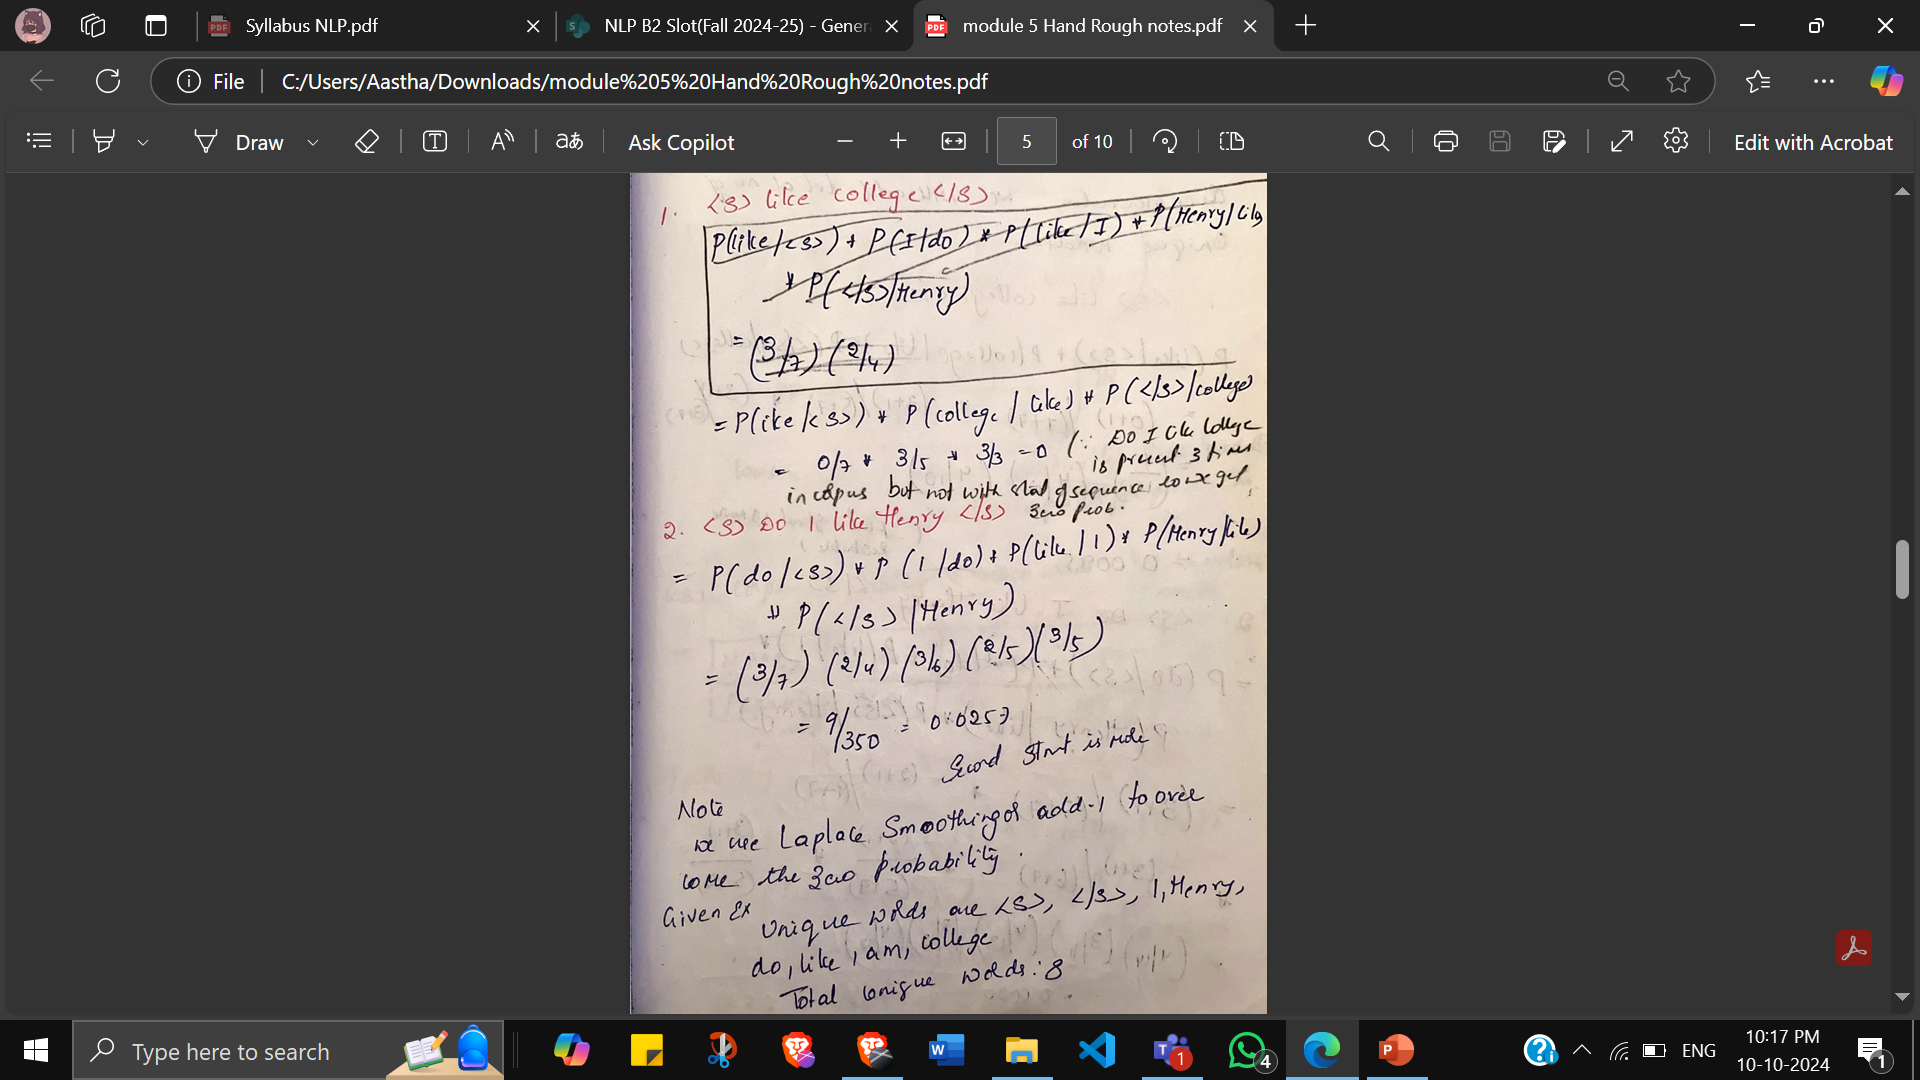 Syllabus NLP.pdf
NLP B2 Slot(Fall 2024-25) - Gener
module 5 Hand Rough notes.pdf
File
C:/Users/Aastha/Downloads/module%205%20Hand%20Rough%20notes.pdf
Draw
aあ
Ask Copilot
5 of 10
Edit with Acrobat
1. <s> like college </s>
P(like/<s>) * P(I/do) * P(like/I) * P(Henry/like)
* P(</s>/Henry)
= (3/7) (2/4)
= P(like/<s>) * P(college/like) * P(</s>/college)
= 0/7 * 3/5 * 3/3 = 0 (∵ Do I like college
is present 3 times
in corpus but not with start of sequence so we get
zero prob.
2. <s> Do I like Henry </s>
= P(do/<s>) * P(I/do) * P(like/I) * P(Henry/like)
* P(</s>/Henry)
= (3/7) (2/4) (3/6) (2/5) (3/5)
= 9/350 = 0.0257
Second Stmt is
Note
we use Laplace Smoothing or add-1 to over
come the zero probability.
Given Ex
Unique words are <s>, </s>, I, Henry,
do, like, am, college
Total unique words: 8
Type here to search
1
4
ENG
10:17 PM
10-10-2024
1